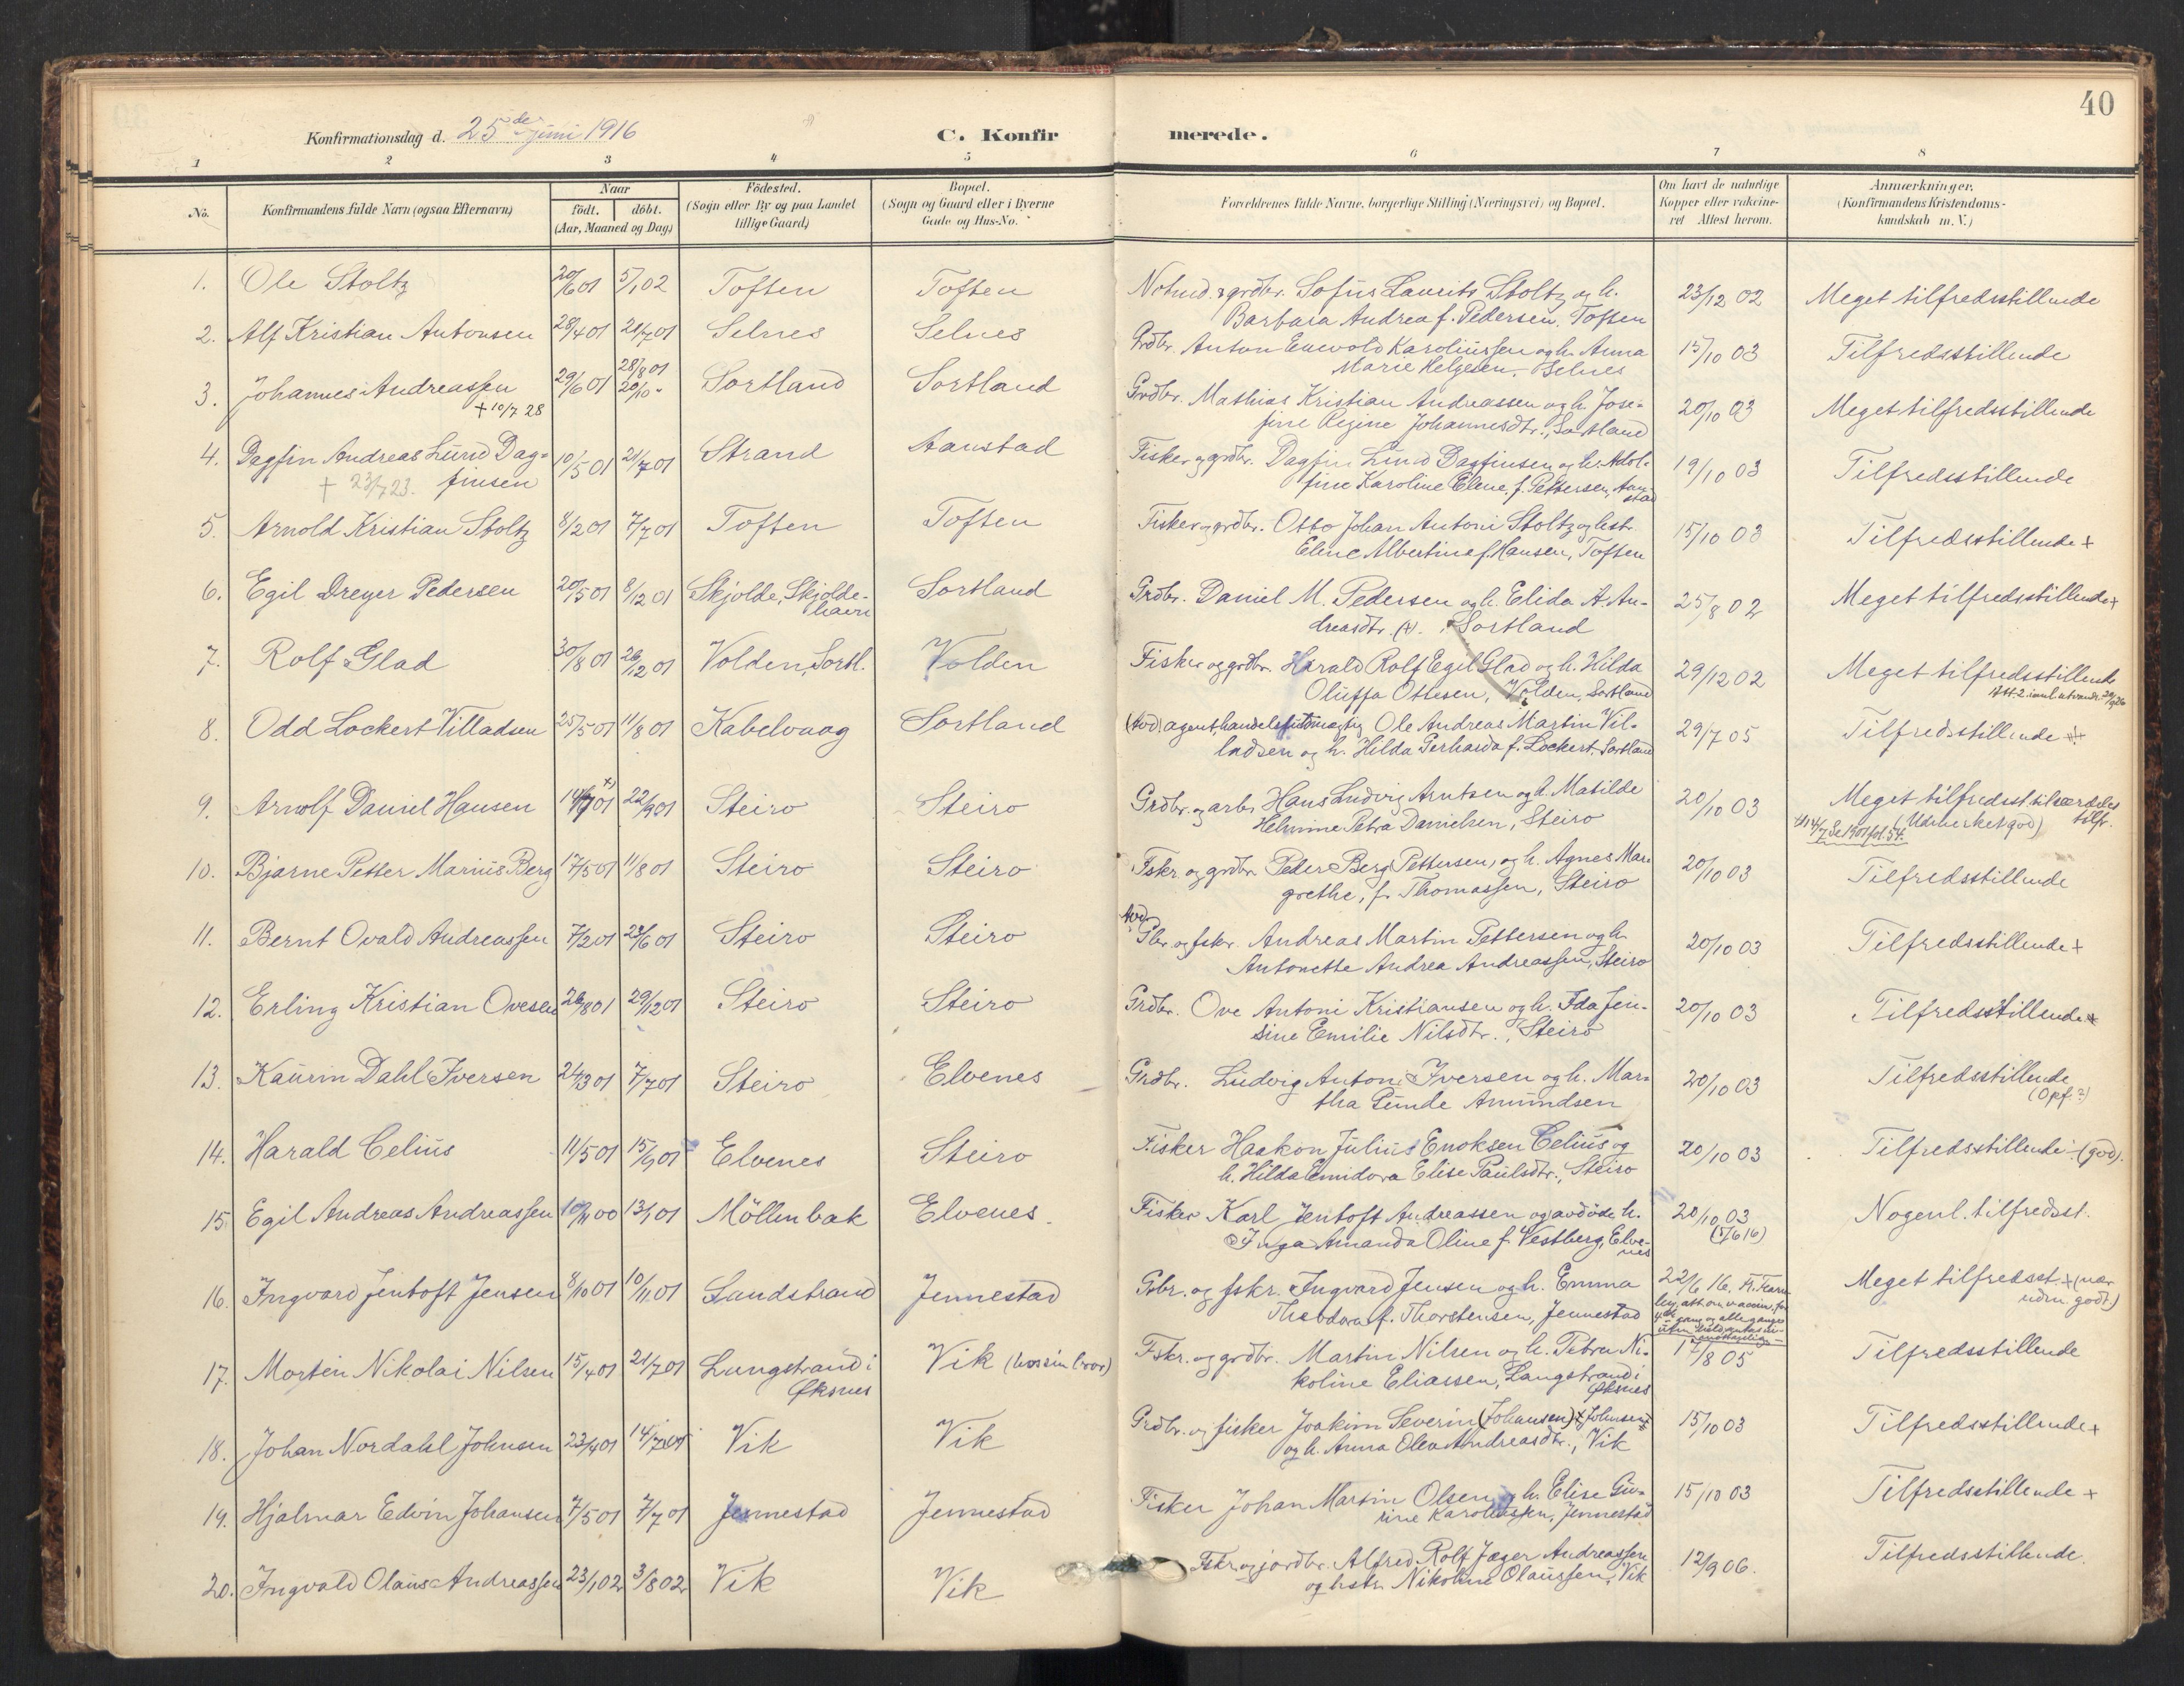 40
Konfirmationsdag d. 25de juni 1916 C. Konfirmerede.
1 2 3 4 5 6 7 8
No. Konfirmandens fulde Navn (ogsaa Efternavn) Naar födt. döbt. (Aar, Maaned og Dag.) Födested. (Sogn eller By og paa Landet tillige Gaard) Bopæl. (Sogn og Gaard eller i Byerne Gade og Hus-No. Forældrenes fulde Navne, borgerlige Stilling (Næringsvei) og Bopæl. Om havt de naturlige Kopper eller vakcineret Attest herom. Anmærkninger. (Konfirmandens Kristendomskundskab m. V.)
1. Ole Stoltz 20/6 01 5/1 02 Toften Toften Notmd. & grdbr. Sofus Laurits Stoltz og h. 23/12 02 Meget tilfredsstillende
Barbara Andrea f. Pedersen. Toften
2. Alf Kristian Antonsen 28/4 01 21/7 01 Selnes Selnes Grdbr. Anton Enevold Karoliussen og h. Anna 15/10 03 Tilfredsstillende
Marie Helgesen. Selnes
3. Johannes Andreassen 29/6 01 28/8 01 20/10 " Sortland Sortland Grdbr. Mathias Kristian Andreassen og h. Jose- 20/10 03 Meget tilfredsstillende
+ 10/7 28 fine Regine Johannesdtr., Sortland
4. Dagfin Andreas Lund Dag- 10/5 01 21/7 01 Strand Aanstad Fisker og grdbr. Dagfin Lund Dagfinsen og h. Adol- 19/10 03 Tilfredsstillende
+ 23/7 23. finsen fine Karoline Elene, f. Pettersen, Aanstad
5. Arnold Kristian Stoltz 8/2 01 7/7 01 Toften Toften Fisker og grdbr. Otto Johan Antoni Stoltz og hstr. 15/10 03 Tilfredsstillende +
Eline Albertine f. Hansen, Toften
6. Egil Dreyer Pedersen 20/5 01 8/12 01 Skjolde, Skjolde- Sortland Grdbr. Daniel M. Pedersen og h. Elida A. An- 25/8 02 Meget tilfredsstillende +
havn dreasdtr. (+). Sortland
7. Rolf Glad 30/8 01 26/12 01 Volden, Sortl. Volden Fisker og grdbr. Harald Rolf Egil Glad og h. Hilda 29/12 02 Meget tilfredsstillende
Oluffa Ottesen, Volden, Sortland
8. Odd Lockert Villadsen 25/5 01 11/8 01 Kabelvaag Sortland (tvd.) agent, handelsfuldmægtig Ole Andreas Martin Vil- 29/7 05 Tilfredsstillende
ladsen og h. Hilda Gerharda f. Lockert. Sortland
9. Arnolf Daniel Hansen 14/7 01 22/9 01 Steiro Steiro Grdbr. og arb. Hans Ludvig Arntsen og h. Matilde 20/10 03 Meget tilfredsst. til særdeles tilfr.
Helmine Petra Danielsen, Steiro (Udmerket god)
10. Bjarne Petter Marius Berg 17/5 01 11/8 01 Steiro Steiro Fskr. og grdbr. Peder Berg Pettersen, og h. Agnes Mar- 20/10 03 Tilfredsstillende
grethe, f. Thomassen, Steiro
11. Bernt Ovald Andreassen 7/2 01 23/6 01 Steiro Steiro Gbr. og fskr. Andreas Martin Pettersen og h. 20/10 03 Tilfredsstillende +
Antonette Andrea Andreassen, Steiro
12. Erling Kristian Ovesen 26/8 01 29/12 01 Steiro Steiro Grdbr. Ove Antoni Kristiansen og h. Ida Jen- 20/10 03 Tilfredsstillende +
sine Emilie Nilsdtr., Steiro
13. Kaurin Dahl Iversen 24/3 01 7/7 01 Steiro Elvenes Grdbr. Ludvig Anton Iversen og h. Mar- 20/10 03 Tilfredsstillende
tha Gunde Amundsen (Opf.?)
14. Harald Celius 11/5 01 15/9 01 Elvenes Steiro Fisker Haakon Julius Enoksen Celius og 20/10 03 Tilfredsstillende - (god).
h. Hilda Emidora Elise Paulsdtr., Steiro
15. Egil Andreas Andreassen 10/11 00 13/1 01 Möllenbak Elvenes. Fisker Karl Jentoft Andreassen og avdøde h. 20/10 03 Nogenl. tilfredsst.
Inga Amanda Oline f. Vestberg, Elvenes (5/6 16)
16. Ingvard Jentoft Jensen 8/10 01 10/11 01 Sandstrand Jennestad Gbr. og fskr. Ingvard Jensen og h. Emma 22/6 16. Meget tilfredsst. + (nær
Theodora f. Thorstensen, Jennestad udm. godt)
17. Morten Nikolai Nilsen 15/4 01 21/7 01 Langstrand i Vik (hos sin bror) Fskr. og grdbr. Martin Nilsen og h. Petra Ni- 17/8 05 Tilfredsstillende
Øksnes koline Eliassen, Langstrand i Øksnes
18. Johan Nordahl Johnsen 23/4 01 14/7 01 Vik Vik Grdbr. og fisker Joakim Severin (Johansen) Johnsen 15/10 03 Tilfredsstillende +
og h. Anna Olea Andreasdtr., Vik
19. Hjalmar Edvin Johansen 7/5 01 7/7 01 Jennestad Jennestad Fisker Johan Martin Olsen og h. Elise Gu- 15/10 03 Tilfredsstillende +
rine Karoliussen, Jennestad
20. Ingvald Olaus Andreassen 23/1 02 3/8 02 Vik Vik Fskr. og jordbr. Alfred Rolf Jæger Andreassen 12/9 06. Tilfredsstillende.
og hstr. Nikoline Olaussen, Vik